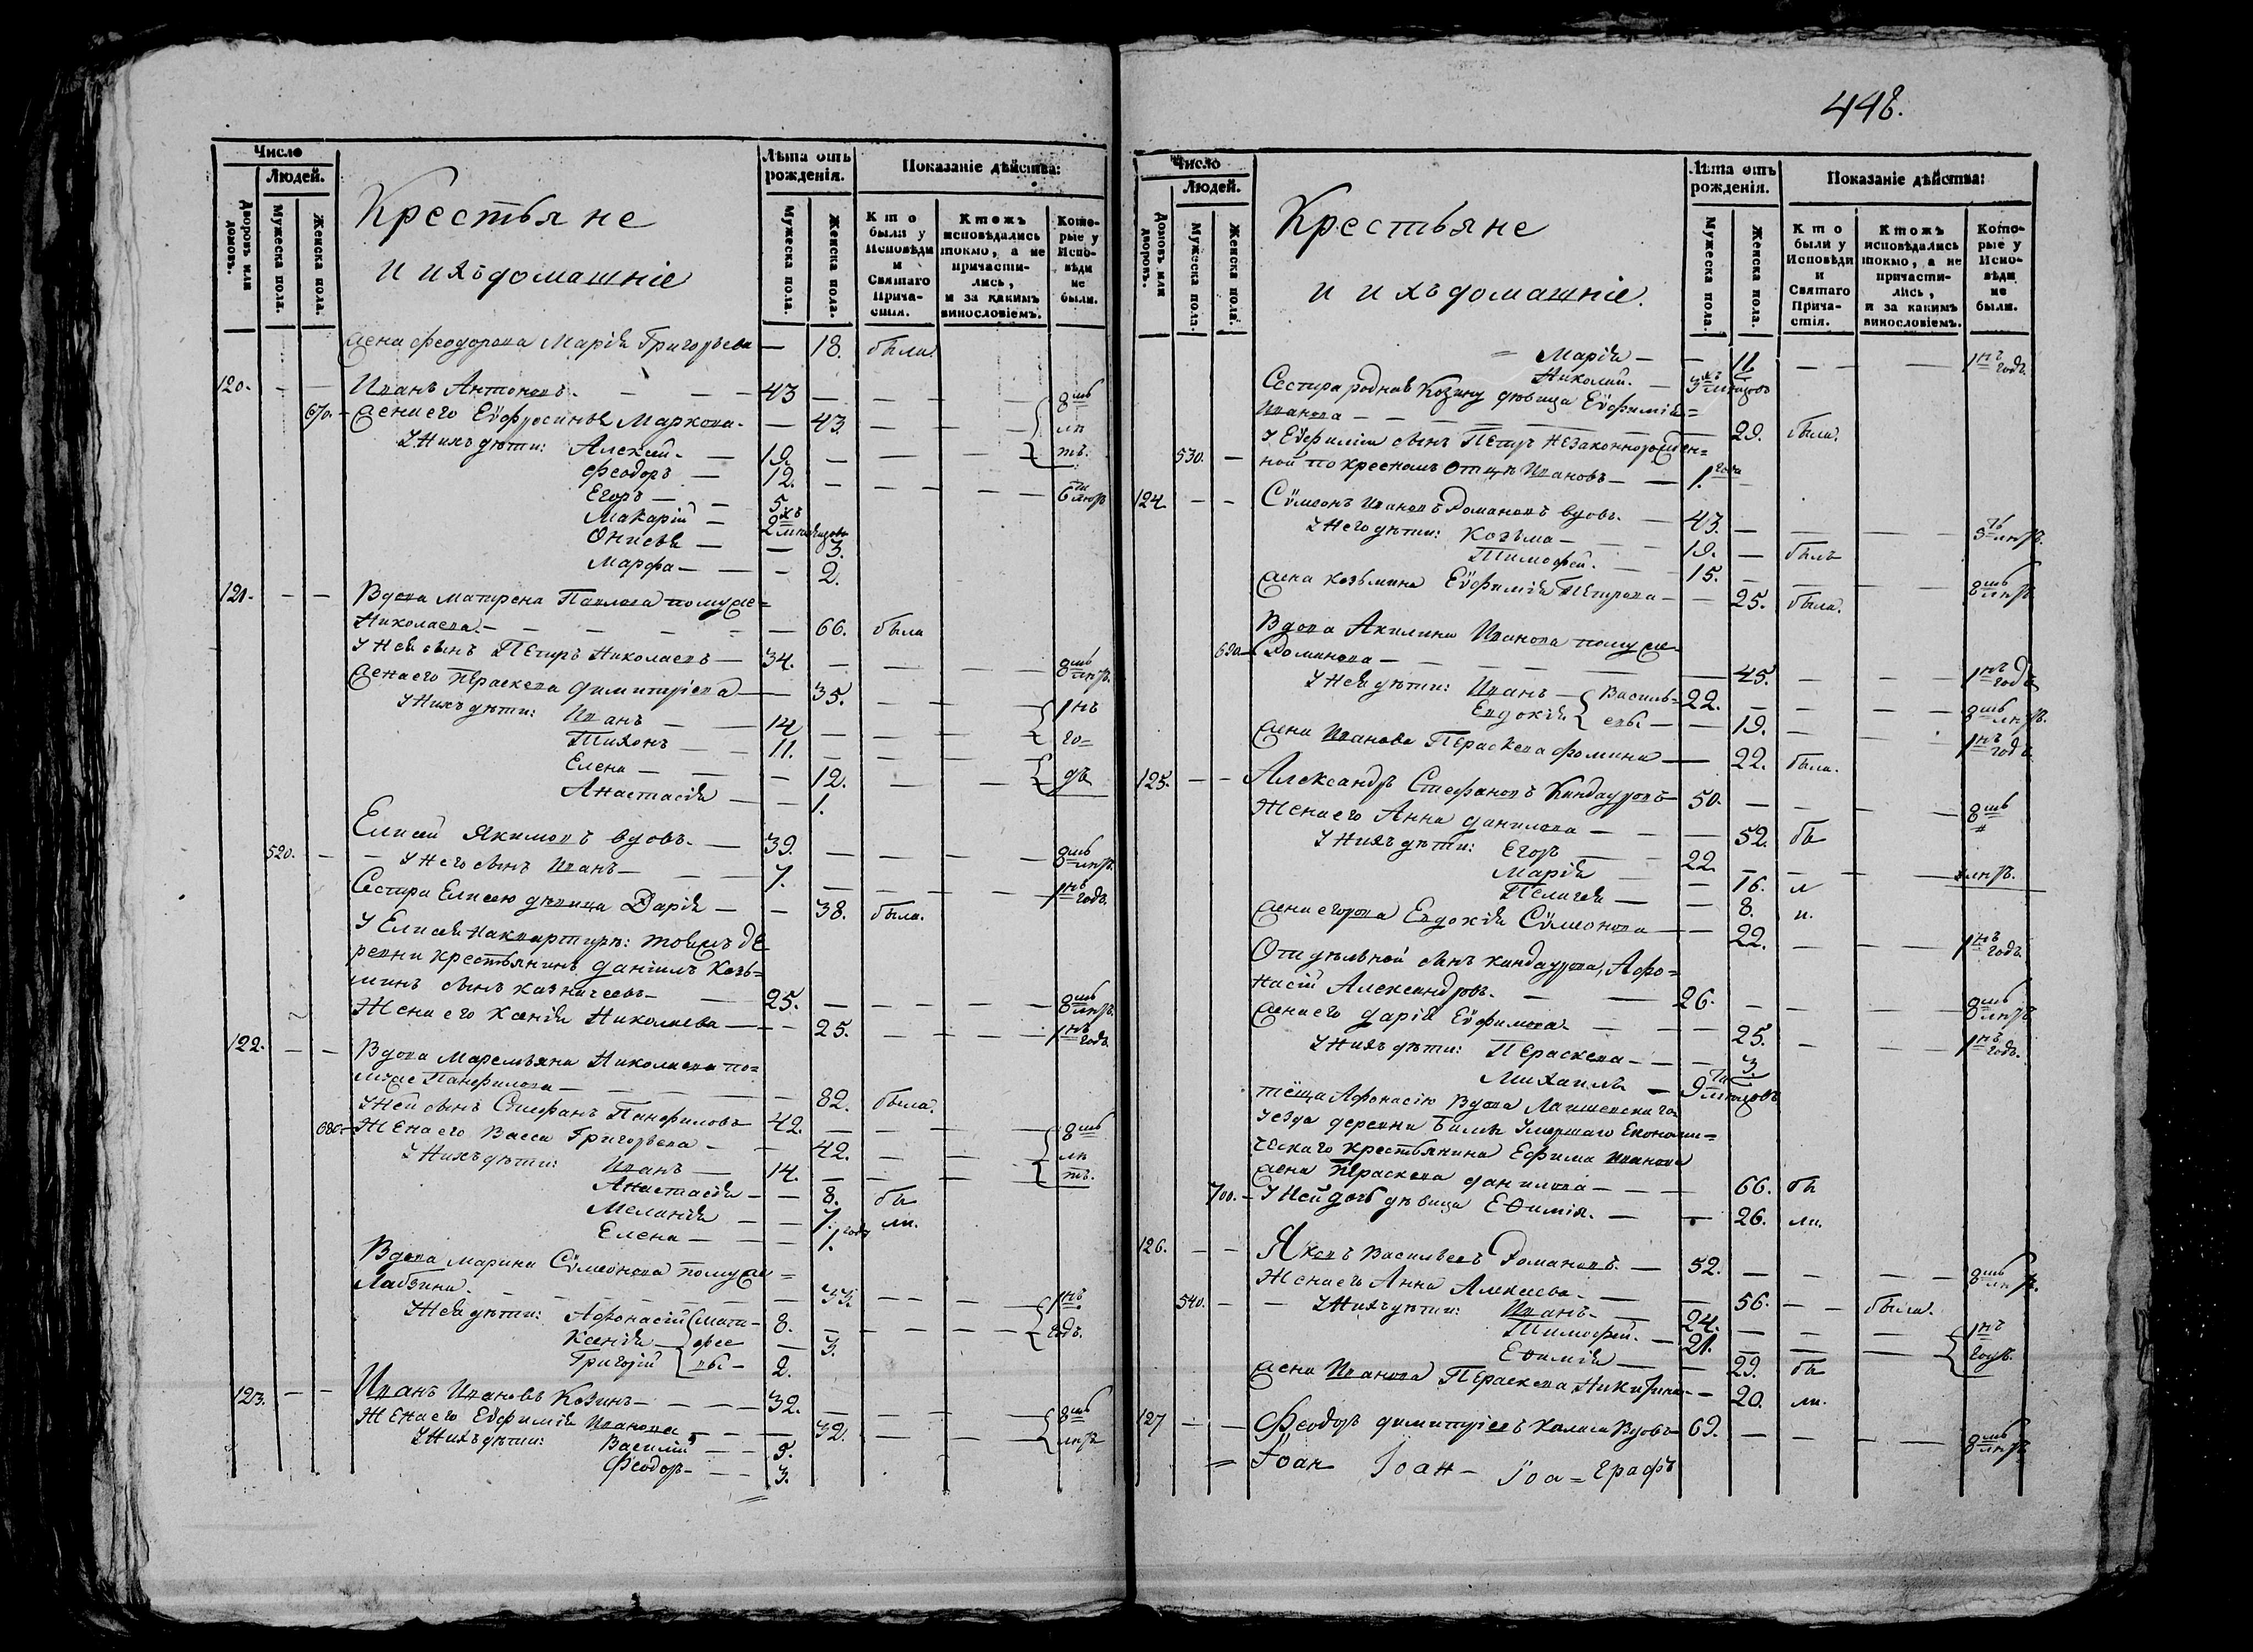 Число
Людей.
Дворовъ или домовъ.
Мужеска пола.
Женска пола.
Крестьяне
и ихъ домашніе
Лѣта отъ рожденія.
Мужеска пола.
Женска пола.
Показаніе дѣйства:
Кто были у Исповѣди и Святаго Прича-стія.
Ктожъ исповѣдались токмо, а не причасти-лись, и за какимъ винословіемъ.
Кото-рые у Испо-вѣди не были.
жена Феодорова Марія Григорьева — 18. была.
120. — — Иванъ Антоновъ — 43 — — — 8мь
670. — жена его Еѵфросинья Маркова — 43. — — лѣ
У нихъ дѣти: Алексѣй — 19. — — тъ.
Феодоръ — 12. — — — 6ть лѣтъ
Егоръ — 5
Макарій — 2хъ мѣсяцовъ
Онисья — — 3.
Марфа — — 2.
121. — — Вдова Матрена Павлова по мужѣ=
Николаева — — 66. была
У ней сынъ Петръ Николаевъ — 34. — — — 8мь лѣтъ.
жена его Параскева Димитріева — 35. — — —
У нихъ дѣти: Иванъ — 14 — — 1нъ
Тихонъ — 11. — — го=
Елена — — 12. — — дъ
Анастасія — — 1.
Елисей Якимовъ вдовъ. — 39. — — — 8мь лѣтъ.
520. — — У него сынъ Иванъ — 7. — — — 1нъ годъ.
Сестра Елисею дѣвица Дарія — — 38. была.
У Елисея на квартирѣ: тоежъ де
ревни крестьянинъ Даніилъ Козь=
минъ сынъ Казначеевъ — 25. — — — 8мь лѣтъ.
Жена его Ксенія Николаева — — 25. — — — 1нъ годъ.
122. — — Вдова Маремьяна Николаева по=
мужѣ Панфилова — — 82. была.
У ней сынъ Стефанъ Панфиловъ 42. — — — 8мь
680. — Жена его Васса Григорьева — — 42. — — лѣ
У нихъ дѣти: Иванъ — 14. — — тъ.
Анастасія — — 8. бы
Меланія — — 7. ли.
Елена — — 1. году
Вдова Марина Сѵмеонова по мужѣ =
Лабзина. — — 33. — — — 1нъ
У ней дѣти: Афонасій Мат- 8. — — — годъ.
Ксенія фее — 3.
Григорій вы — 2.
123. — — Иванъ Ивановъ Козинъ — 32. — — — 8мь
Жена его Еѵфимія Иванова — — 32. — — лѣтъ
У нихъ дѣти: Василій — 5.
Феодоръ — 3.
448.
Число
Людей.
Домовъ или дворовъ.
Мужеска пола.
Женска пола.
Крестьяне
и ихъ домашніе.
Лѣта отъ рожденія.
Мужеска пола.
Женска пола.
Показаніе дѣйства:
Кто были у Исповѣди и Святаго Прича-стія.
Ктожъ исповѣдались токмо, а не причасти-лись, и за какимъ винословіемъ.
Кото-рые у Испо-вѣди не были.
= Марія — — 11. — — — 1нъ годъ.
Николай. — 3хъ мѣсяцовъ
Сестра родная Козину дѣвица Еѵфимія=
Иванова — — 29. была.
530. — У Еѵфиміи сынъ Петръ незаконнорожден=
ной по кресномъ отцѣ Ивановъ — 1. года
124 — — Сѵмеонъ Ивановъ Романовъ вдовъ. — 43. — — — 5ть лѣтъ.
У него дѣти: Козьма — 19. — былъ
Тимофей. — 15. — — — 8мь лѣтъ
жена Козьмина Еѵфимія Петрова — — 25. была.
Вдова Акилина Иванова по мужѣ
690 — Романова — — 45. — — — 1нъ годъ
У ней дѣти: Иванъ — Василь= 22. — — — 8мь лѣтъ.
Евдокія евы — — 19. — — 1нъ годъ.
жена Иванова Параскева Фомина — — 22. была.
125. — — Александръ Стефановъ Киндауровъ 50. — — — 8мь
Жена его Анна Данилова — — 52. бы
У нихъ дѣти: Егоръ — 22. — — — лѣтъ.
Марія — 16. л
Пелагея — — 8. и.
жена Егорова Евдокія Сѵмеонова — — 22. — — — 1нъ годъ.
Отдѣльной сынъ Киндаурова, Афо=
насій Александровъ. — 26. — — — 8мь лѣтъ
жена его Дарія Еѵфимова — — 25. — — — 1нъ годъ.
У нихъ дѣти: Параскева — — 3.
Михаилъ — 9ти мѣсяцовъ
тёща Афонасію Вдова Лаишевскаго
уезда деревни умершаго Економи=
ческаго крестьянина Ефима Иванова
жена Параскева Данилова — — 66. бы
700. — У ней дочь дѣвица Еѳимія. — — 26. ли.
126. — — Яковъ Васильевъ Романовъ. — 52. — — — 8мь лѣтъ.
Жена его Анна Алексѣева — — 56. — — была.
540. — — У нихъ дѣти: Иванъ — 24. — — — 1нъ
Тимофей. — 21. — — — годъ.
Еѳимія — — 29. бы
жена Иванова Параскева Никитина — — 20. ли.
127 — — Феодоръ Димитріевъ вдовъ 69. — — — 8мь лѣтъ
= Іоан Іоан — Іоа = Ерафъ